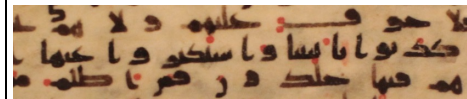 لا خوف عليهم ولا هم
كذبوا بايتنا واستكبروا عنها ا
هم فيها خلدون فمن اظلم م